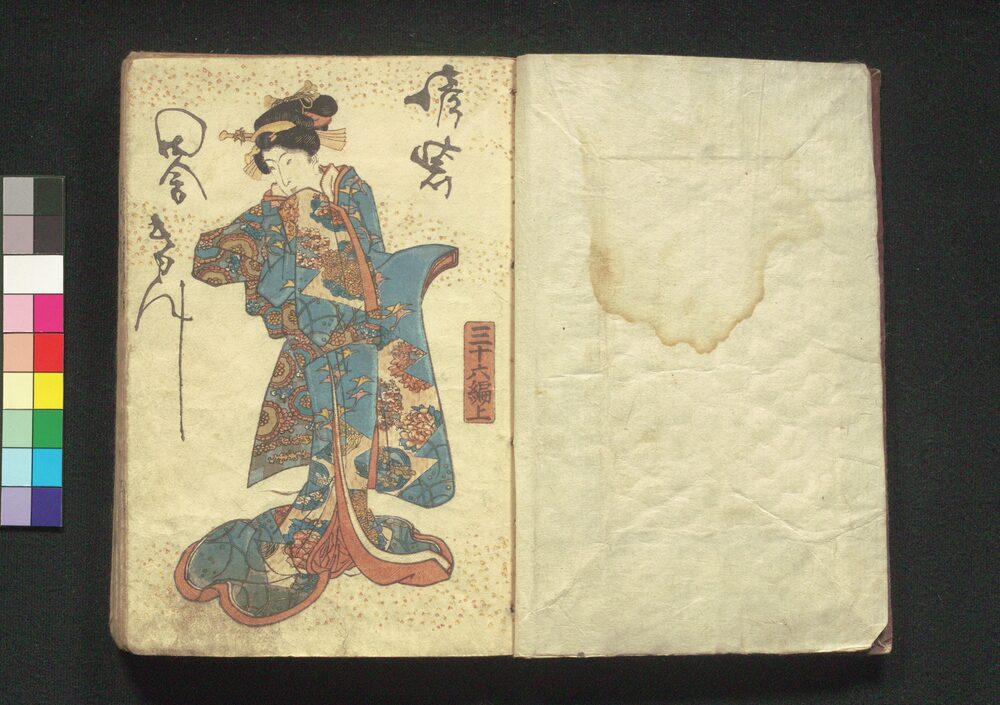 偐紫
三十六編上
田舎